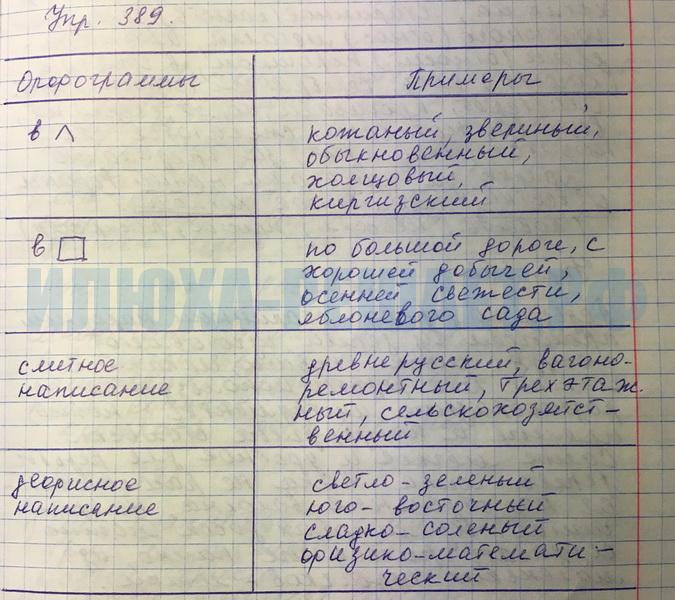 Упр. 389.
Орфограммы Примеры
в ^ кожаный, звериный,
обыкновенный,
холщовый,
киргизский
в □ по большой дороге, с
хорошей добычей,
осенней свежести,
яблоневого сада
ИЛЮХА-
слитное древнерусский, вагоно-
написание ремонтный, трехэтаж-
ный, сельскохозяйст-
венный
дефисное светло-зеленый
написание юго-восточный
сладко-соленый
физико-математи-
ческий